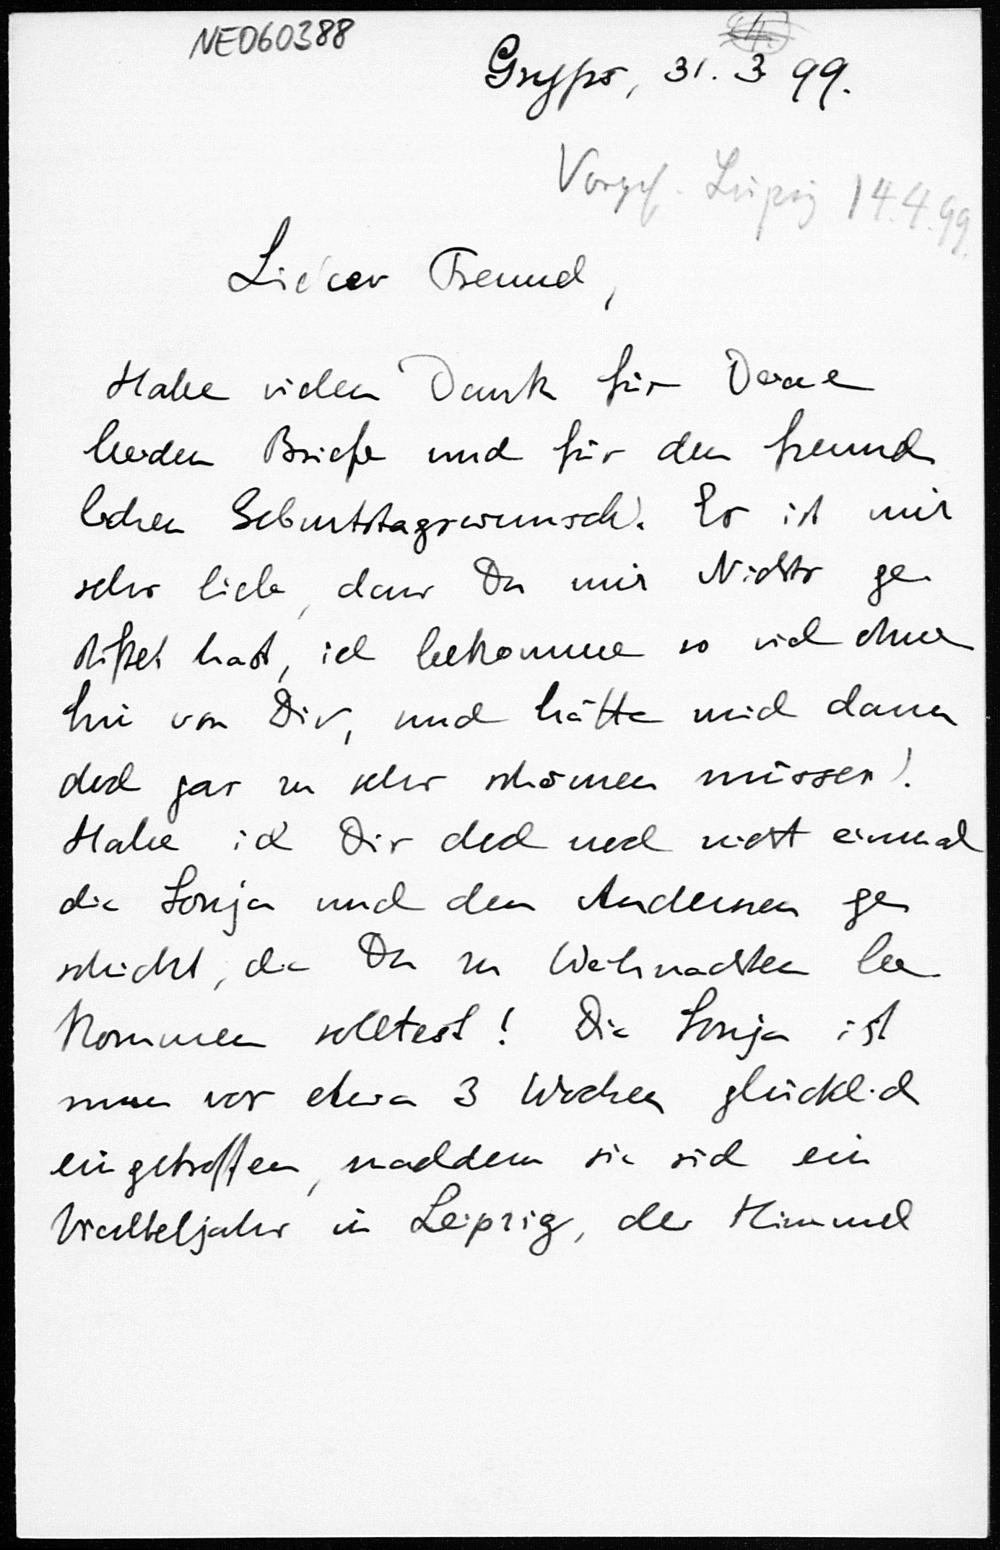 NE060388
Gryps, 31. 3 99.
Leipzig 14.4.99.
Lieber Freund,
Habe vielen Dank für Deine
beiden Briefe und für den freund
lichen Geburtstagswunsch. Es ist mir
sehr lieb, dass Du mir Nichts ge
stiftet hast, ich bekomme so viel ohne
hin von Dir, und hätte mich dann
doch gar zu sehr schämen müssen!
Habe ich Dir doch noch nicht einmal
die Sonja und den Andersen ge
schickt, die Du zu Weihnachten be
kommen solltest! Die Sonja ist
nun vor etwa 3 Wochen glücklich
eingetroffen, nachdem sie sich ein
Vierteljahr in Leipzig, der Himmel